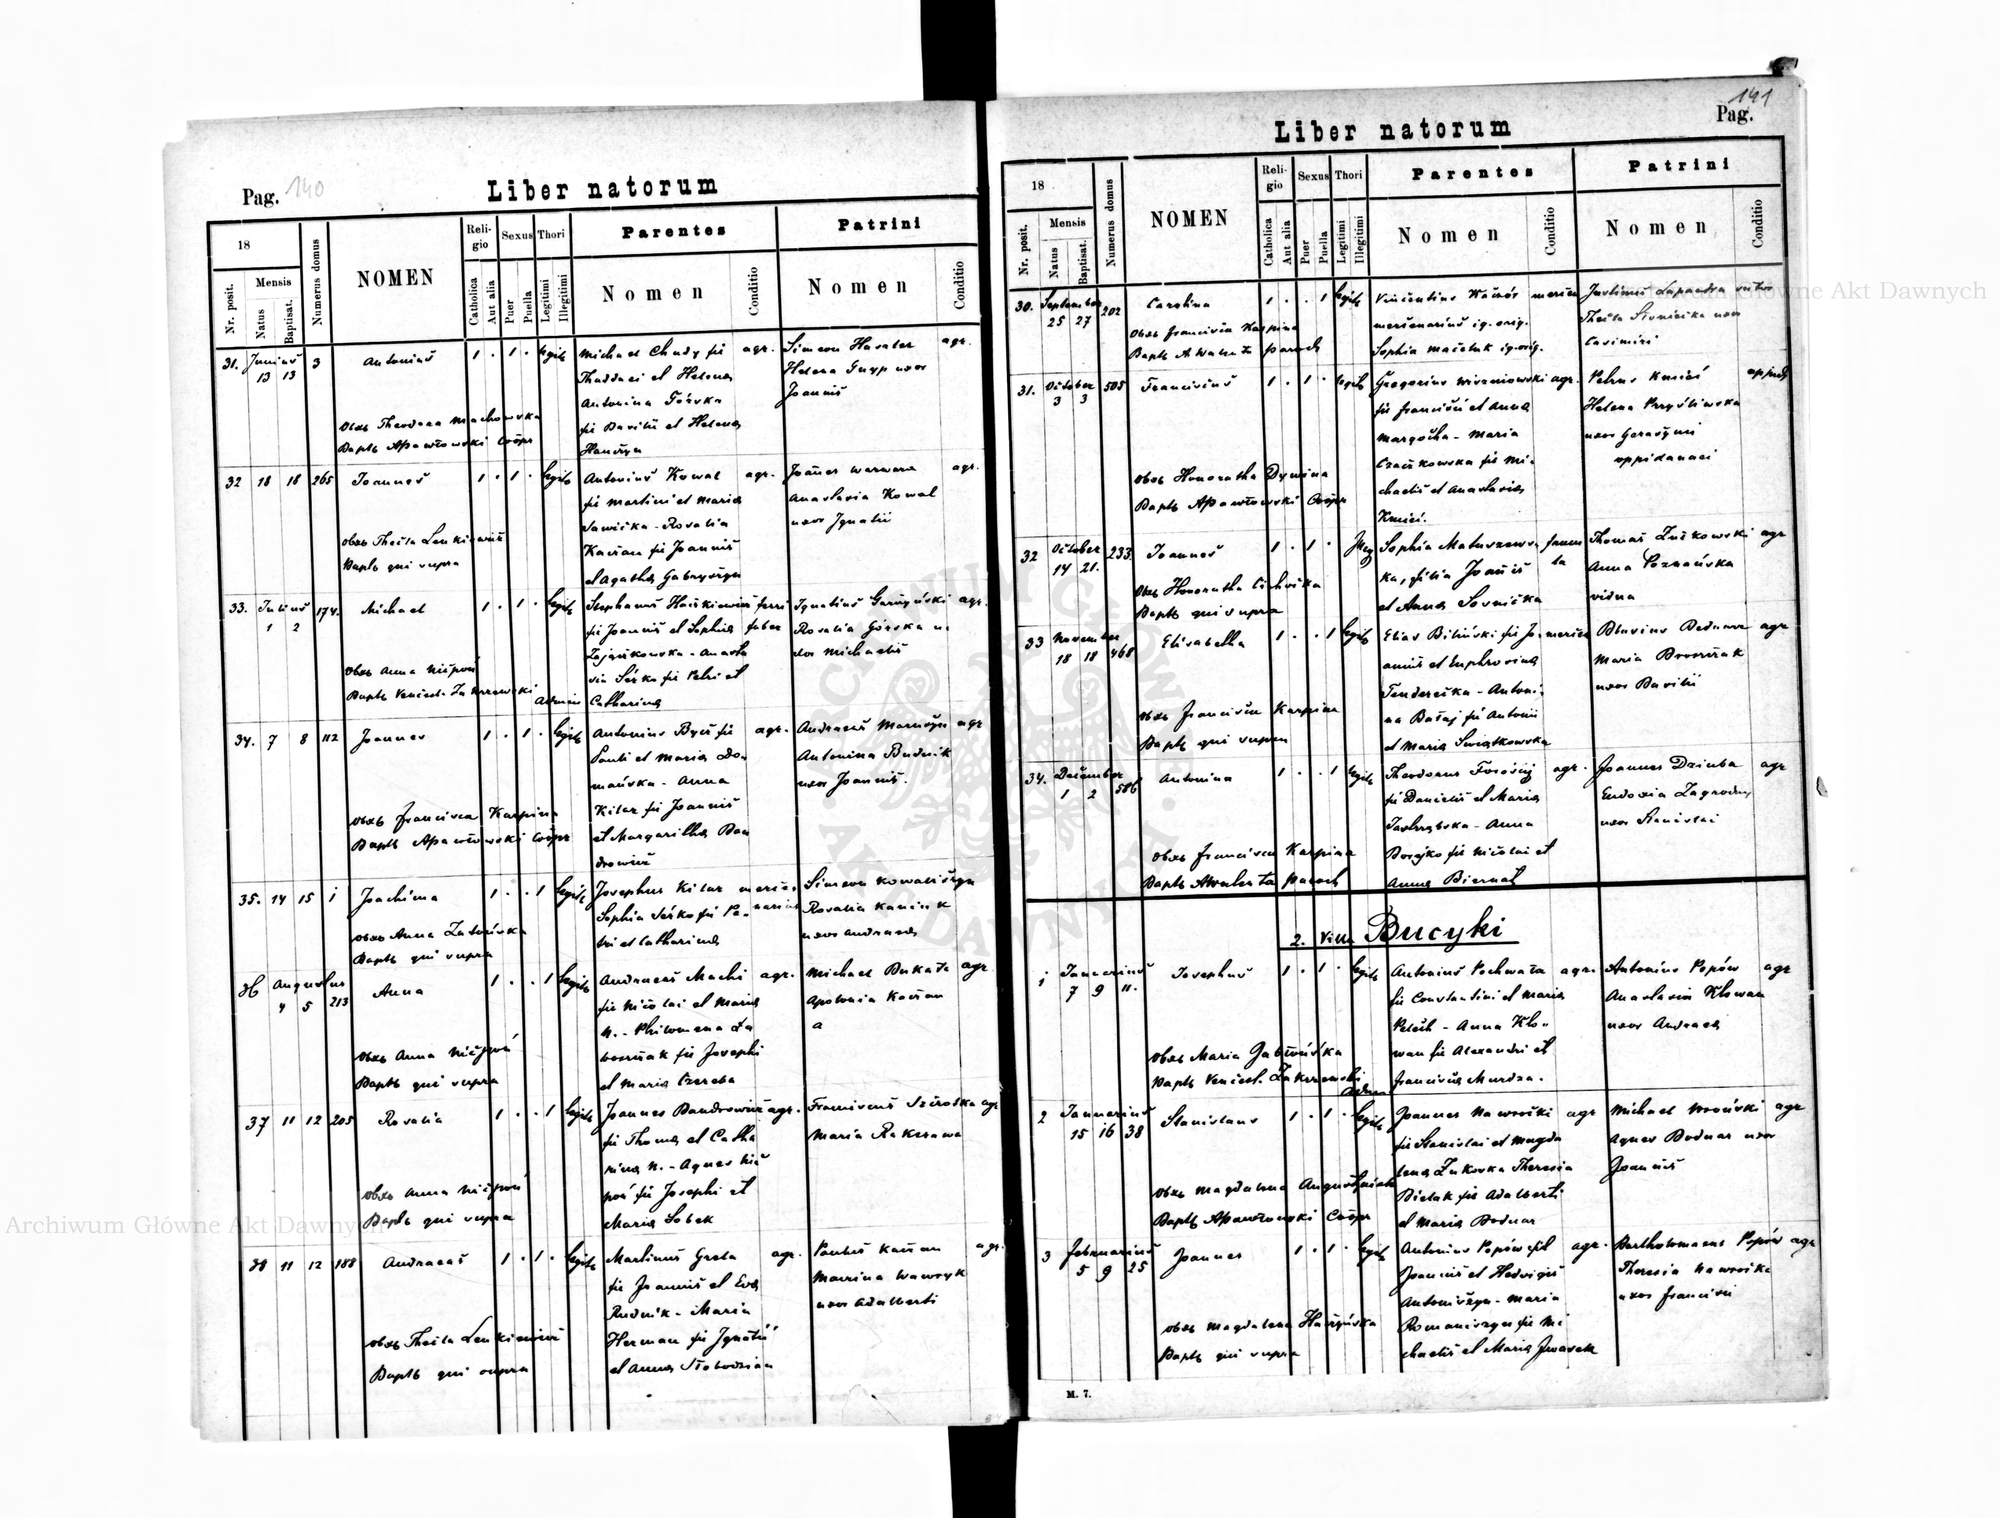 Pag. 140
Liber natorum
18
Mensis
Nr. posit.
Natus
Baptisat.
Numerus domus
NOMEN
Religio
Catholica
Aut alia
Sexus
Puer
Puella
Thori
Legitimi
Illegitimi
Parentes
Nomen
Conditio
Patrini
Nomen
Conditio
31. Junius 13 13 3 Antonius 1 . 1 . legit
Michael Chudy fil agr.
Thaddaei et Helena
Antonina Górska
fil Basilii et Helena
Simeon Hasaler agr.
Helena Gupp uxor
Joannis
Obst Theodora Machowska
Bapts APawłowski Coöpr
32 18 18 265 Joannes 1 . 1 . legit
Antonius Kowal agr.
fil Martini et Maria
Sawicka - Rosalia
Kassan fil Joannis
et Agatha Gabryszyn
Joannes Warwara agr.
Anastasia Kowal
uxor Ignatii
Obst Thecla Lenkiewicz
Bapts qui supra
33. Julius 1 2 174. Michael 1 . 1 . legit
Stephanus Hackiewicz ferri
fil Joannis et Sophia faber
Zajączkowska - Anasta
sia Seńko fil Petri et
Catharina
Ignatius Garczyński agr.
Rosalia Górska u-
xor Michaelis
Obst Anna Niespoń
Bapts Vencesl. Zakrzewski
Admin
34. 7 8 112 Joannes 1 . 1 . legit
Antonius Bycz fil agr.
Pauli et Maria Do-
mańska - Anna
Kilar fil Joannis
et Margaritha Ban
drowicz
Andreas Marusyn agr
Antonina Budnik
uxor Joannis.
Obst Francisca Karpina
Bapts APawłowski Coöpr
35. 14 15 1 Joachima 1 . . 1 legit
Josephus Kilar merce-
Sophia Seńko fil Pe- narius
tri et Catharina
Simeon Kowaliszyn
Rosalia Kaniuk
uxor Andreae
Obst Anna Zatorska
Bapts qui supra
36 Augustus 4 5 213 Anna 1 . . 1 legit
Andreas Machi agr.
fil Nicolai et Maria
N. - Philomena La
woszczak fil Josephi
et Maria Czereba
Michael Bukata agr
Apolonia Kassan
a
Obst Anna Niespoń
Bapts qui supra
37 11 12 205 Rosalia 1 . . 1 legit
Joannes Bandrowicz agr.
fil Thoma et Catha
rina N. - Agnes Nie
spoń fil Josephi et
Maria Sobek
Franciscus Szeroska agr
Maria Rakszawa
Obst Anna Niespoń
Bapts qui supra
38 11 12 188 Andreas 1 . 1 . legit
Martinus Greta agr.
fil Joannis et Eva
Rudnik - Maria
Herman fil Ignatii
et Anna Słobodzian
Paulus Kassan agr.
Marina Wawryk
uxor Adalberti
Obst Thecla Lenkiewicz
Bapts qui supra
141
Pag.
Liber natorum
18
Mensis
Nr. posit.
Natus
Baptisat.
Numerus domus
NOMEN
Religio
Catholica
Aut alia
Sexus
Puer
Puella
Thori
Legitimi
Illegitimi
Parentes
Nomen
Conditio
Patrini
Nomen
Conditio
30. September 25 27 202 Carolina 1 . . 1 legit
Vincentius mercen
mercenarius ig. orig.
Sophia Maciuk ig. orig.
Justinus Łapandra sutor
Thecla Słonicka uxor
Casimiri
Obst Francisca Karpina
Bapts paroch
31. October 3 3 505 Franciscus 1 . 1 . legit
Gregorius Wiszniowski agr.
fil Francisci et Anna
Margocha - Maria
Czaczkowska fil Mi-
chaelis et Anastasia
Kmieć.
Petrus Kmieć oppid
Helena Przyśliwska
uxor Gerasimi
oppidanaei
Obst Honoratha Dywina
Bapts APawłowski Coöpr
32 October 14 21. 233. Joannes 1 . 1 . Illeg
Sophia Matuszews famu
ka, filia Joannis la
et Anna Sosnicka
Thomas Żuckowski agr
Anna Poznańska
vidua
Obst Honoratha Cichocka
Bapts qui supra
33 November 18 18 468 Elisabetha 1 . . 1 legit
Elias Biliński fil Jo- mercen
annis et Euphrosina
Tenderecka - Antoni-
na Basaj fil Antonii
et Maria Swiątkowska
Blasius Bednarz agr
Maria Brosczak
uxor Basilii
Obst Francisca Karpina
Bapts qui supra
34. December 1 2 586 Antonina 1 . . 1 legit
Theodorus Torosij agr.
fil Danielis et Maria
Jastrzębska - Anna
Borejko fil Nicolai et
Anna Biernat
Joannes Dziuba agr
Eudoxia Zagrodny
uxor Stanislai
Obst Francisca Karpina
Bapts AWalenta paroch
2. Villa Bucyki
1 Januarius 7 9 11. Josephus 1 . 1 . legit
Antonius Pochwała agr.
fil Constantini et Maria
Petech - Anna Kło-
wan fil Alexandri et
Francisca Murdza.
Antonius Popów agr
Anastasia Kłowan
uxor Andreae
Obst Maria Gabrońska
Bapts Vencesl. Zakrzewski
Admin
2 Januarius 15 16 38 Stanislaus 1 . 1 . legit
Joannes Nawrocki agr
fil Stanislai et Magda
lena Żukowska Theresia
Bielak fil Adalberti
et Maria Bodnar
Michael Wroński agr
Agnes Bodnar uxor
Joannis
Obst Magdalena Augustyniak
Bapts APawłowski Coöpr
3 Februarius 5 9 25 Joannes 1 . 1 . legit
Antonius Popów fil agr.
Joannis et Hedvigis
Antoniszyn - Maria
Romaniszyn fil Mi
chaelis et Maria Jwasek
Bartholomaeus Popów agr
Theresia Nawrocka
uxor Francisci
Obst Magdalena Haczyńska
Bapts qui supra
M. 7.
Archiwum Główne Akt Dawnych
Archiwum Główne Akt Dawnych
ARCHIWUM GŁÓWNE AKT DAWNYCH